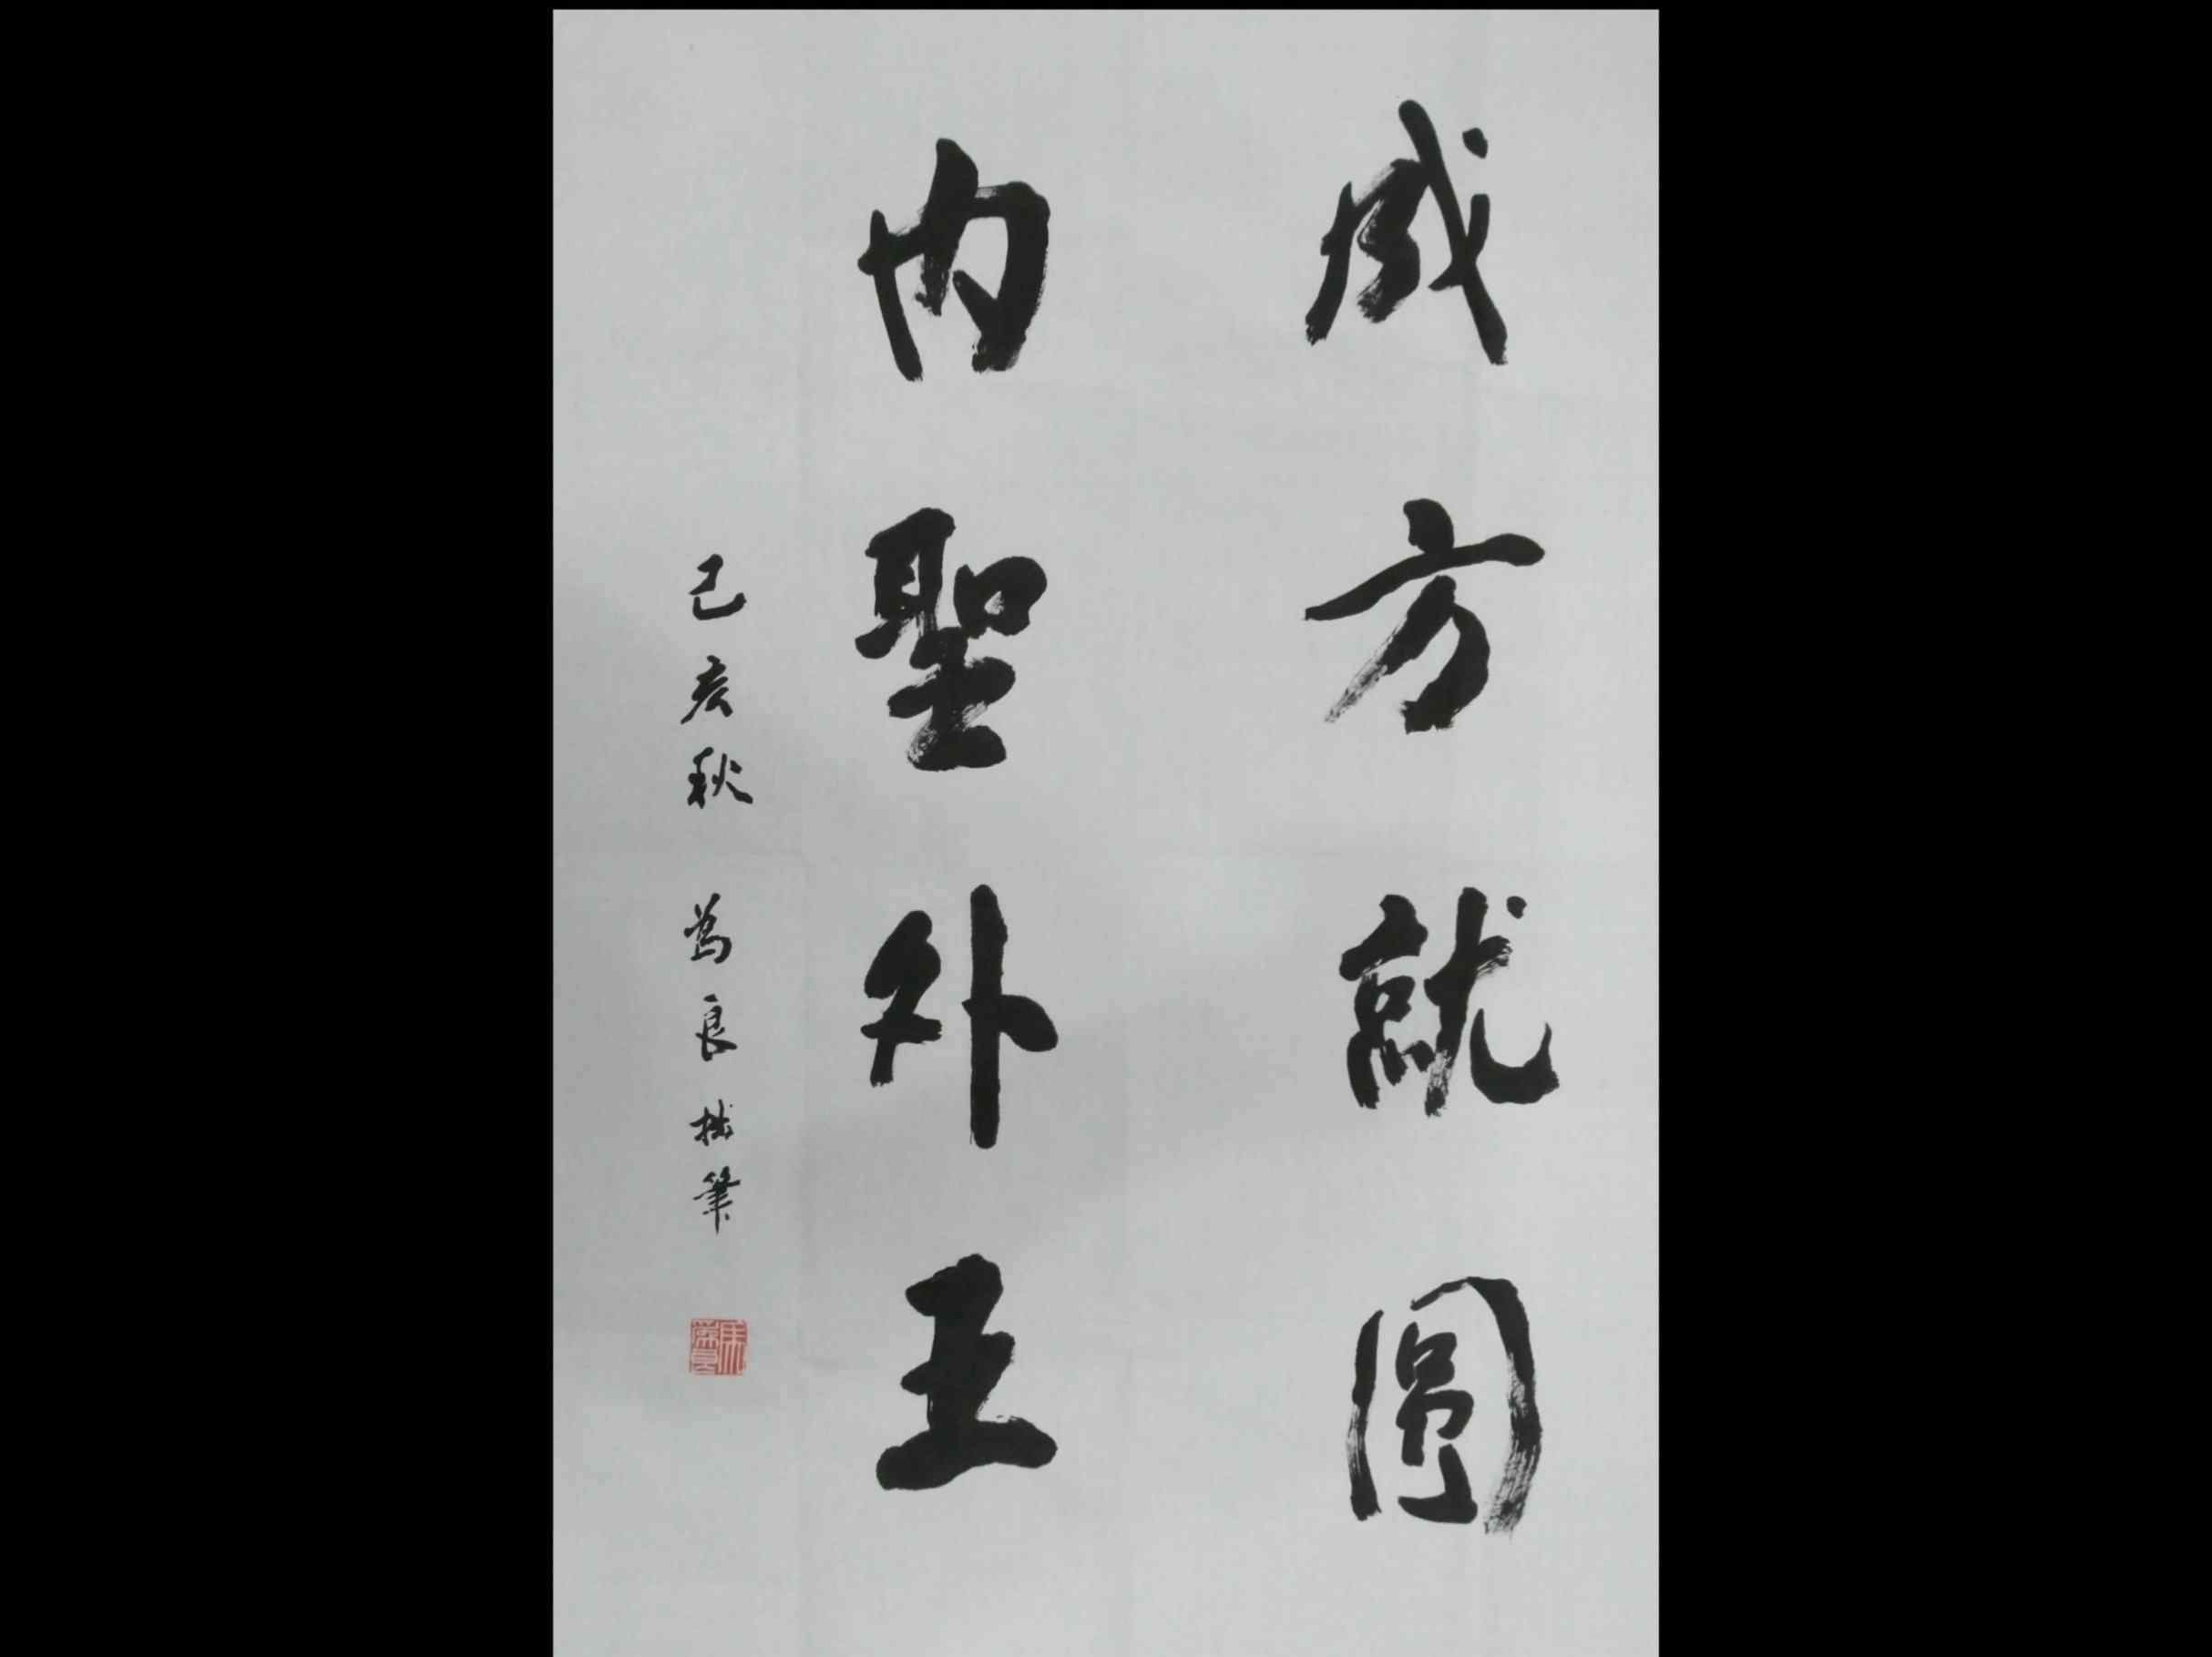 成方就圓
内聖外王
己亥秋 為良拙筆